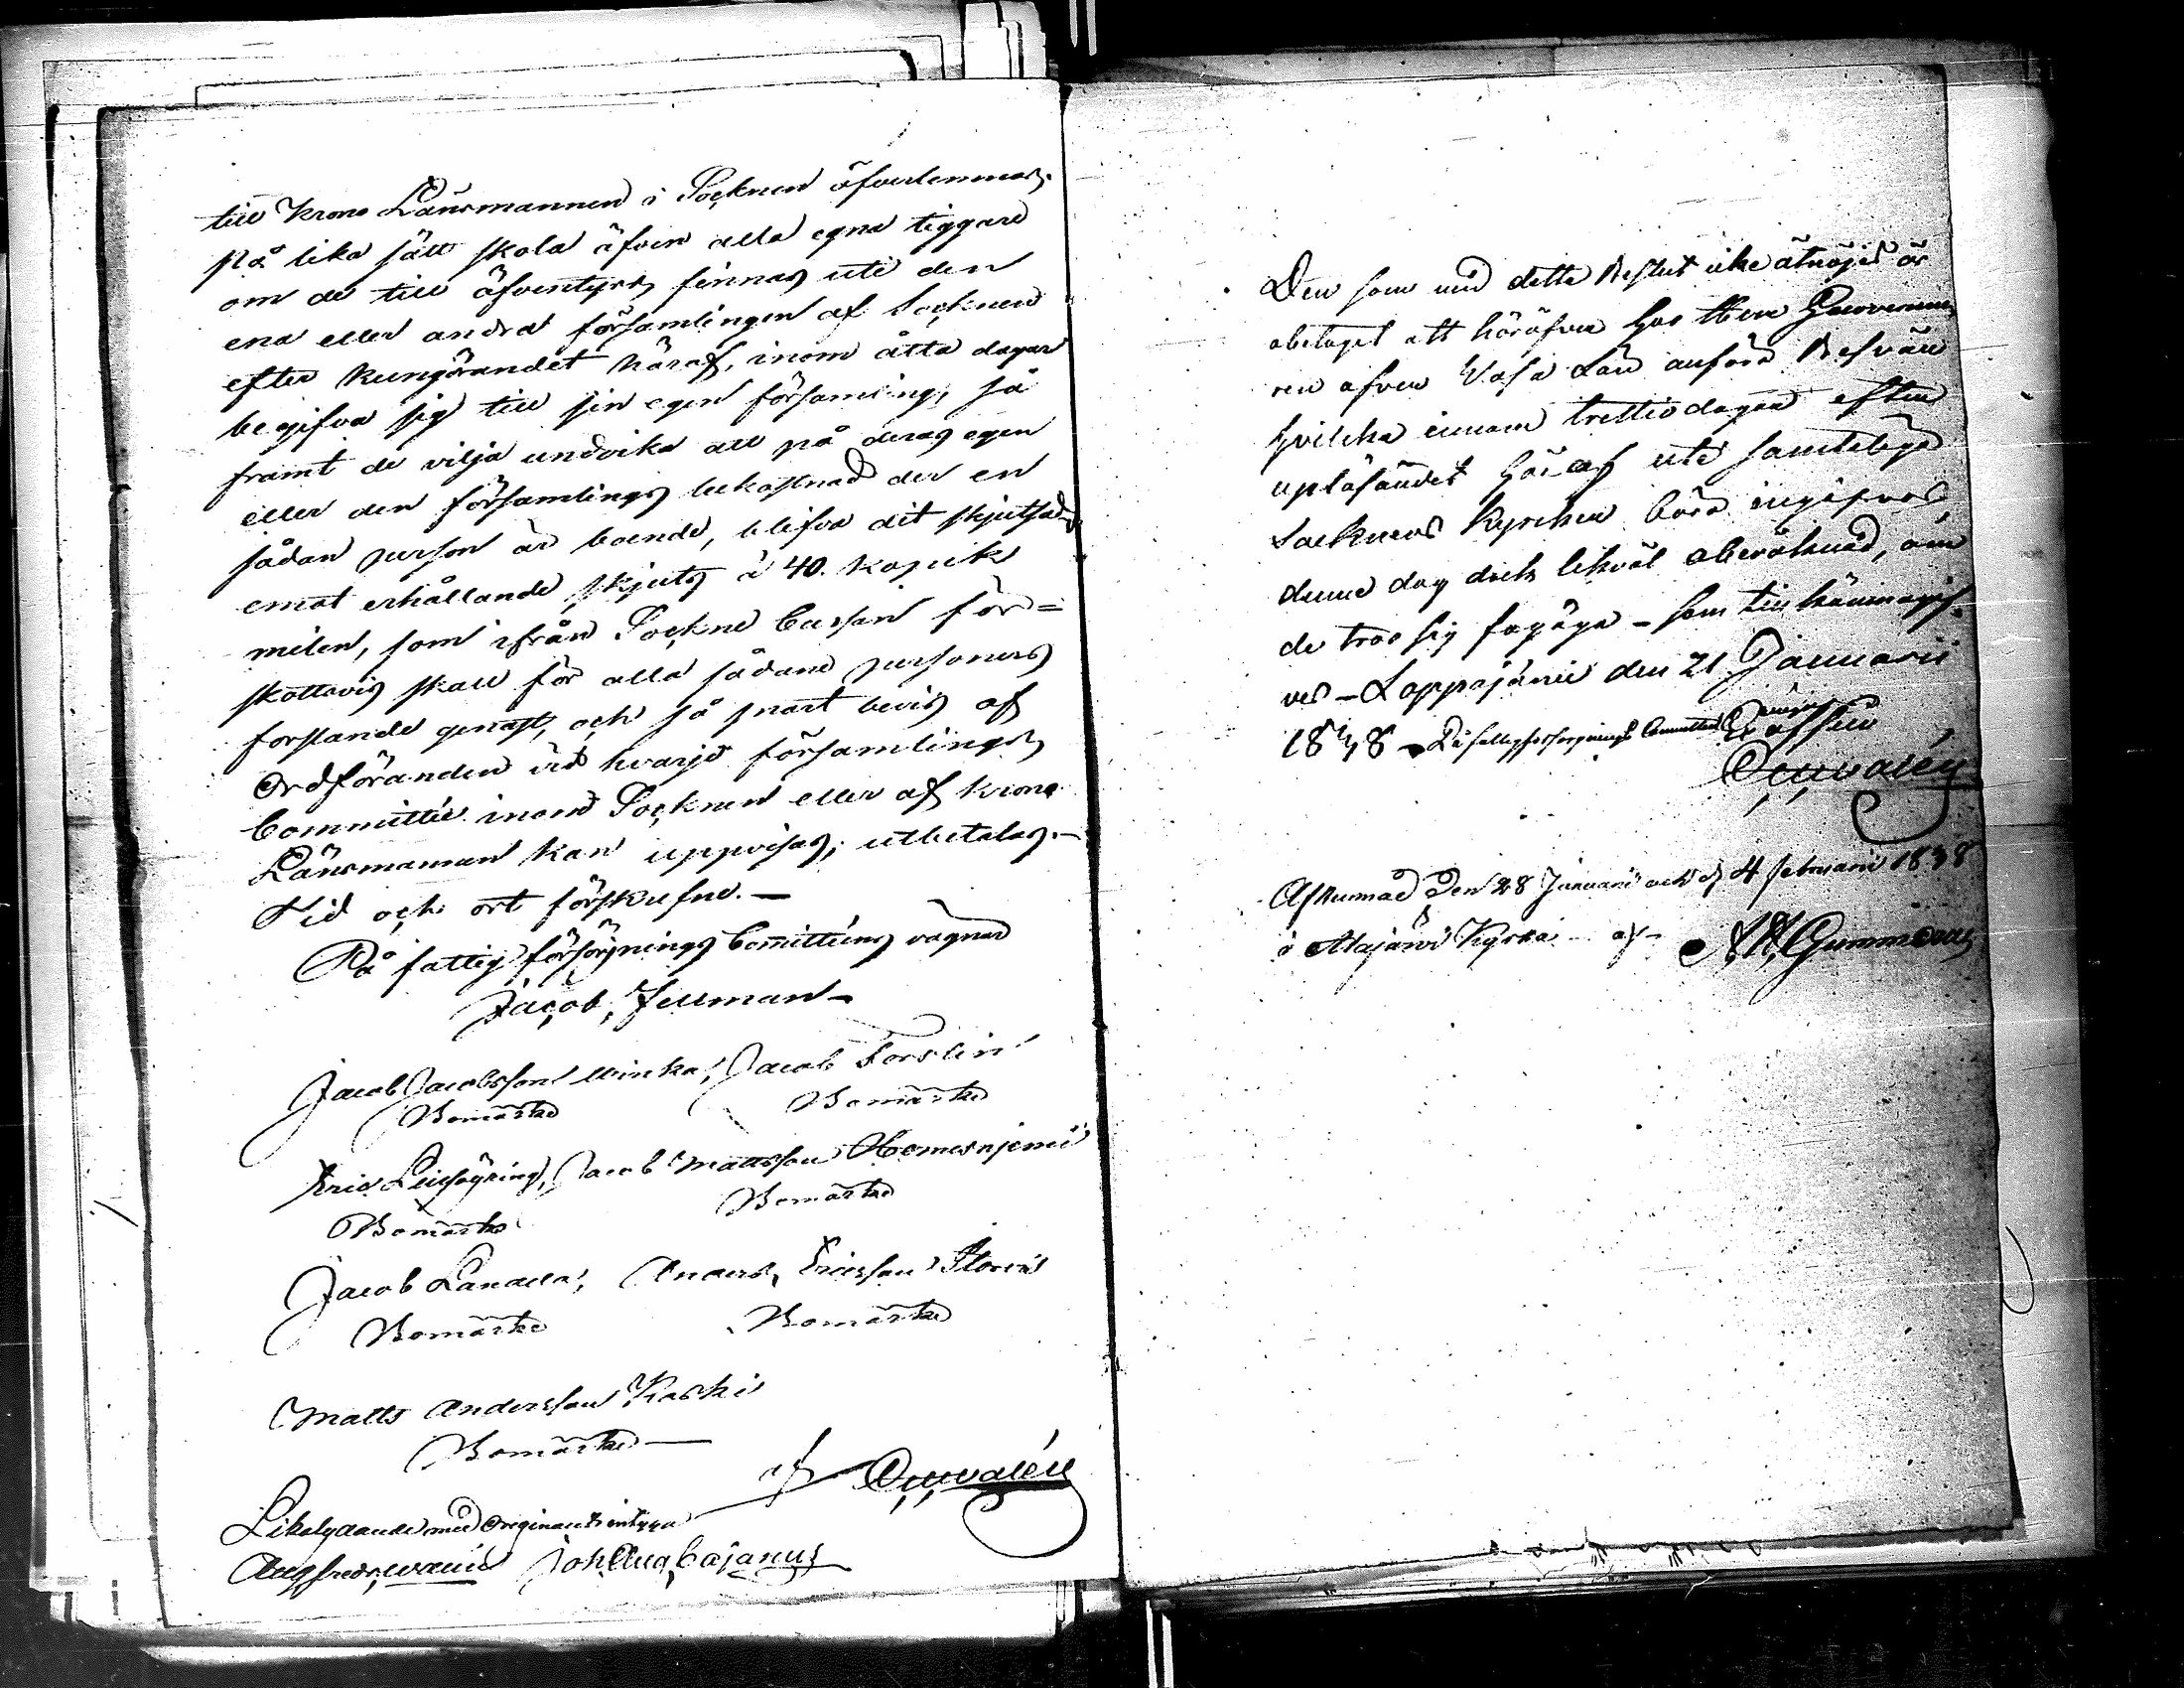 till Krono Länsmannen i Socknen öfverlemnas.
På lika sätt skola äfven alla egna tiggare
om de till äfventyrs finnas uti den
ena eller andra församlingen af Socknen
efter kungörandet häraf, inom åtta dagar
begifva sig till sin egen församling, så
framt de vilja undvika att på deras egen
eller den församlings bekostnad der en
sådan person är boende, blifva dit skjutsade
emot erhållande skjuts à 40. kopek
milen, som ifrån Sockne Cassan för=
skottsvis skall för alla sådane personers
forslande genast, och så snart bevis af
Ordföranden vid hvarje församlings
Committée inom Socknen eller af Krono
Länsmannen kan uppvisas, utbetalas.—
Tid och ort förskrefne.—
På fattigförsörjnings Comitténs vägnar
Jacob Fellman—
Jacob Jacobsson Jacob Forslin
Bomärke Bomärke
Eric Jacob Mattsson
Bomärke Bomärke
Jacob Anders Ericsson
Bomärke Bomärke
Matts Andersson Kaski
Bomärke—
af
Likalydande med Originalet intyga
Joh Aug Cajanus
Den som med dette Beslut icke åtnöjd är
obetaget att häröfver hos Herr Gouverneu
ren öfver Wasa Län anföra Besvär
hvilcka innom trettio dagar efter
upläsandet häraf uti samtelige
Socknens Kyrckor böra ingifvas,
denne dag dock likväl oberäknad, om
de tro sig fogäga – som till känna gif-
ves – Lappajärvi den 21 Januarii
1838 – På fattigförsörjnings Committéns vägnar
Afkunnad den 28 Januarii och d 4 Februarii 1838
i Alajärvi Kyrka af Gummerus